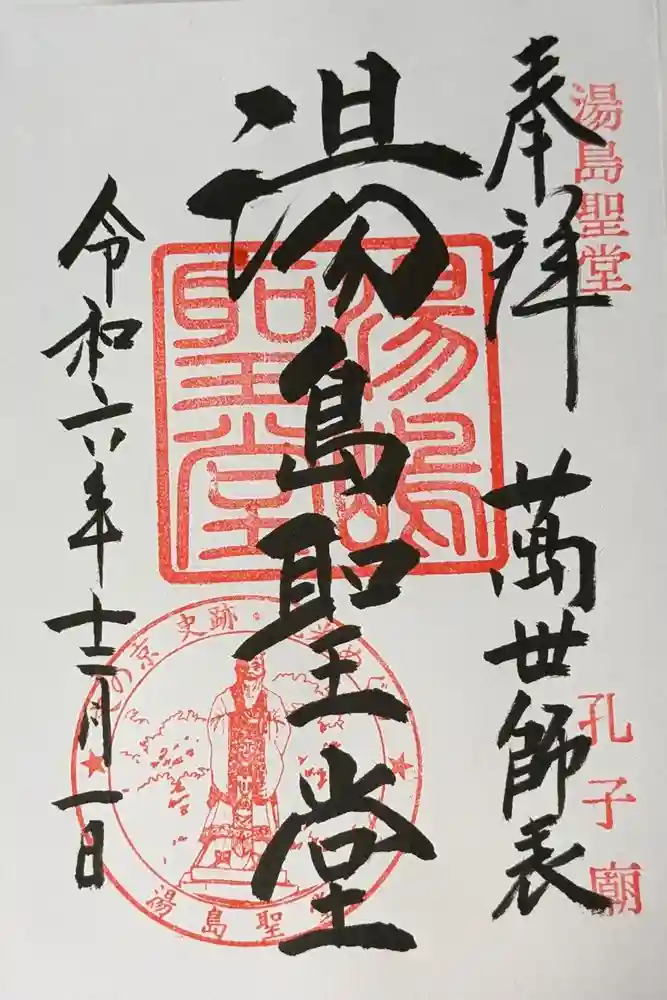 湯島聖堂
孔子廟
奉拝
萬世師表
湯島聖堂
湯島聖堂
令和六年十二月一日
の京
史跡・
湯島聖堂